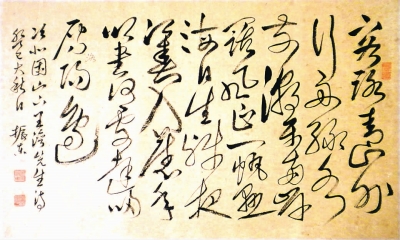 客路青山外
行舟綠水
前潮平兩岸
闊風正一帆懸
海日生殘夜
江春入舊年
鄉書何處達歸
雁洛陽邊
次北固山下王灣先生詩
癸巳大秋日 振东